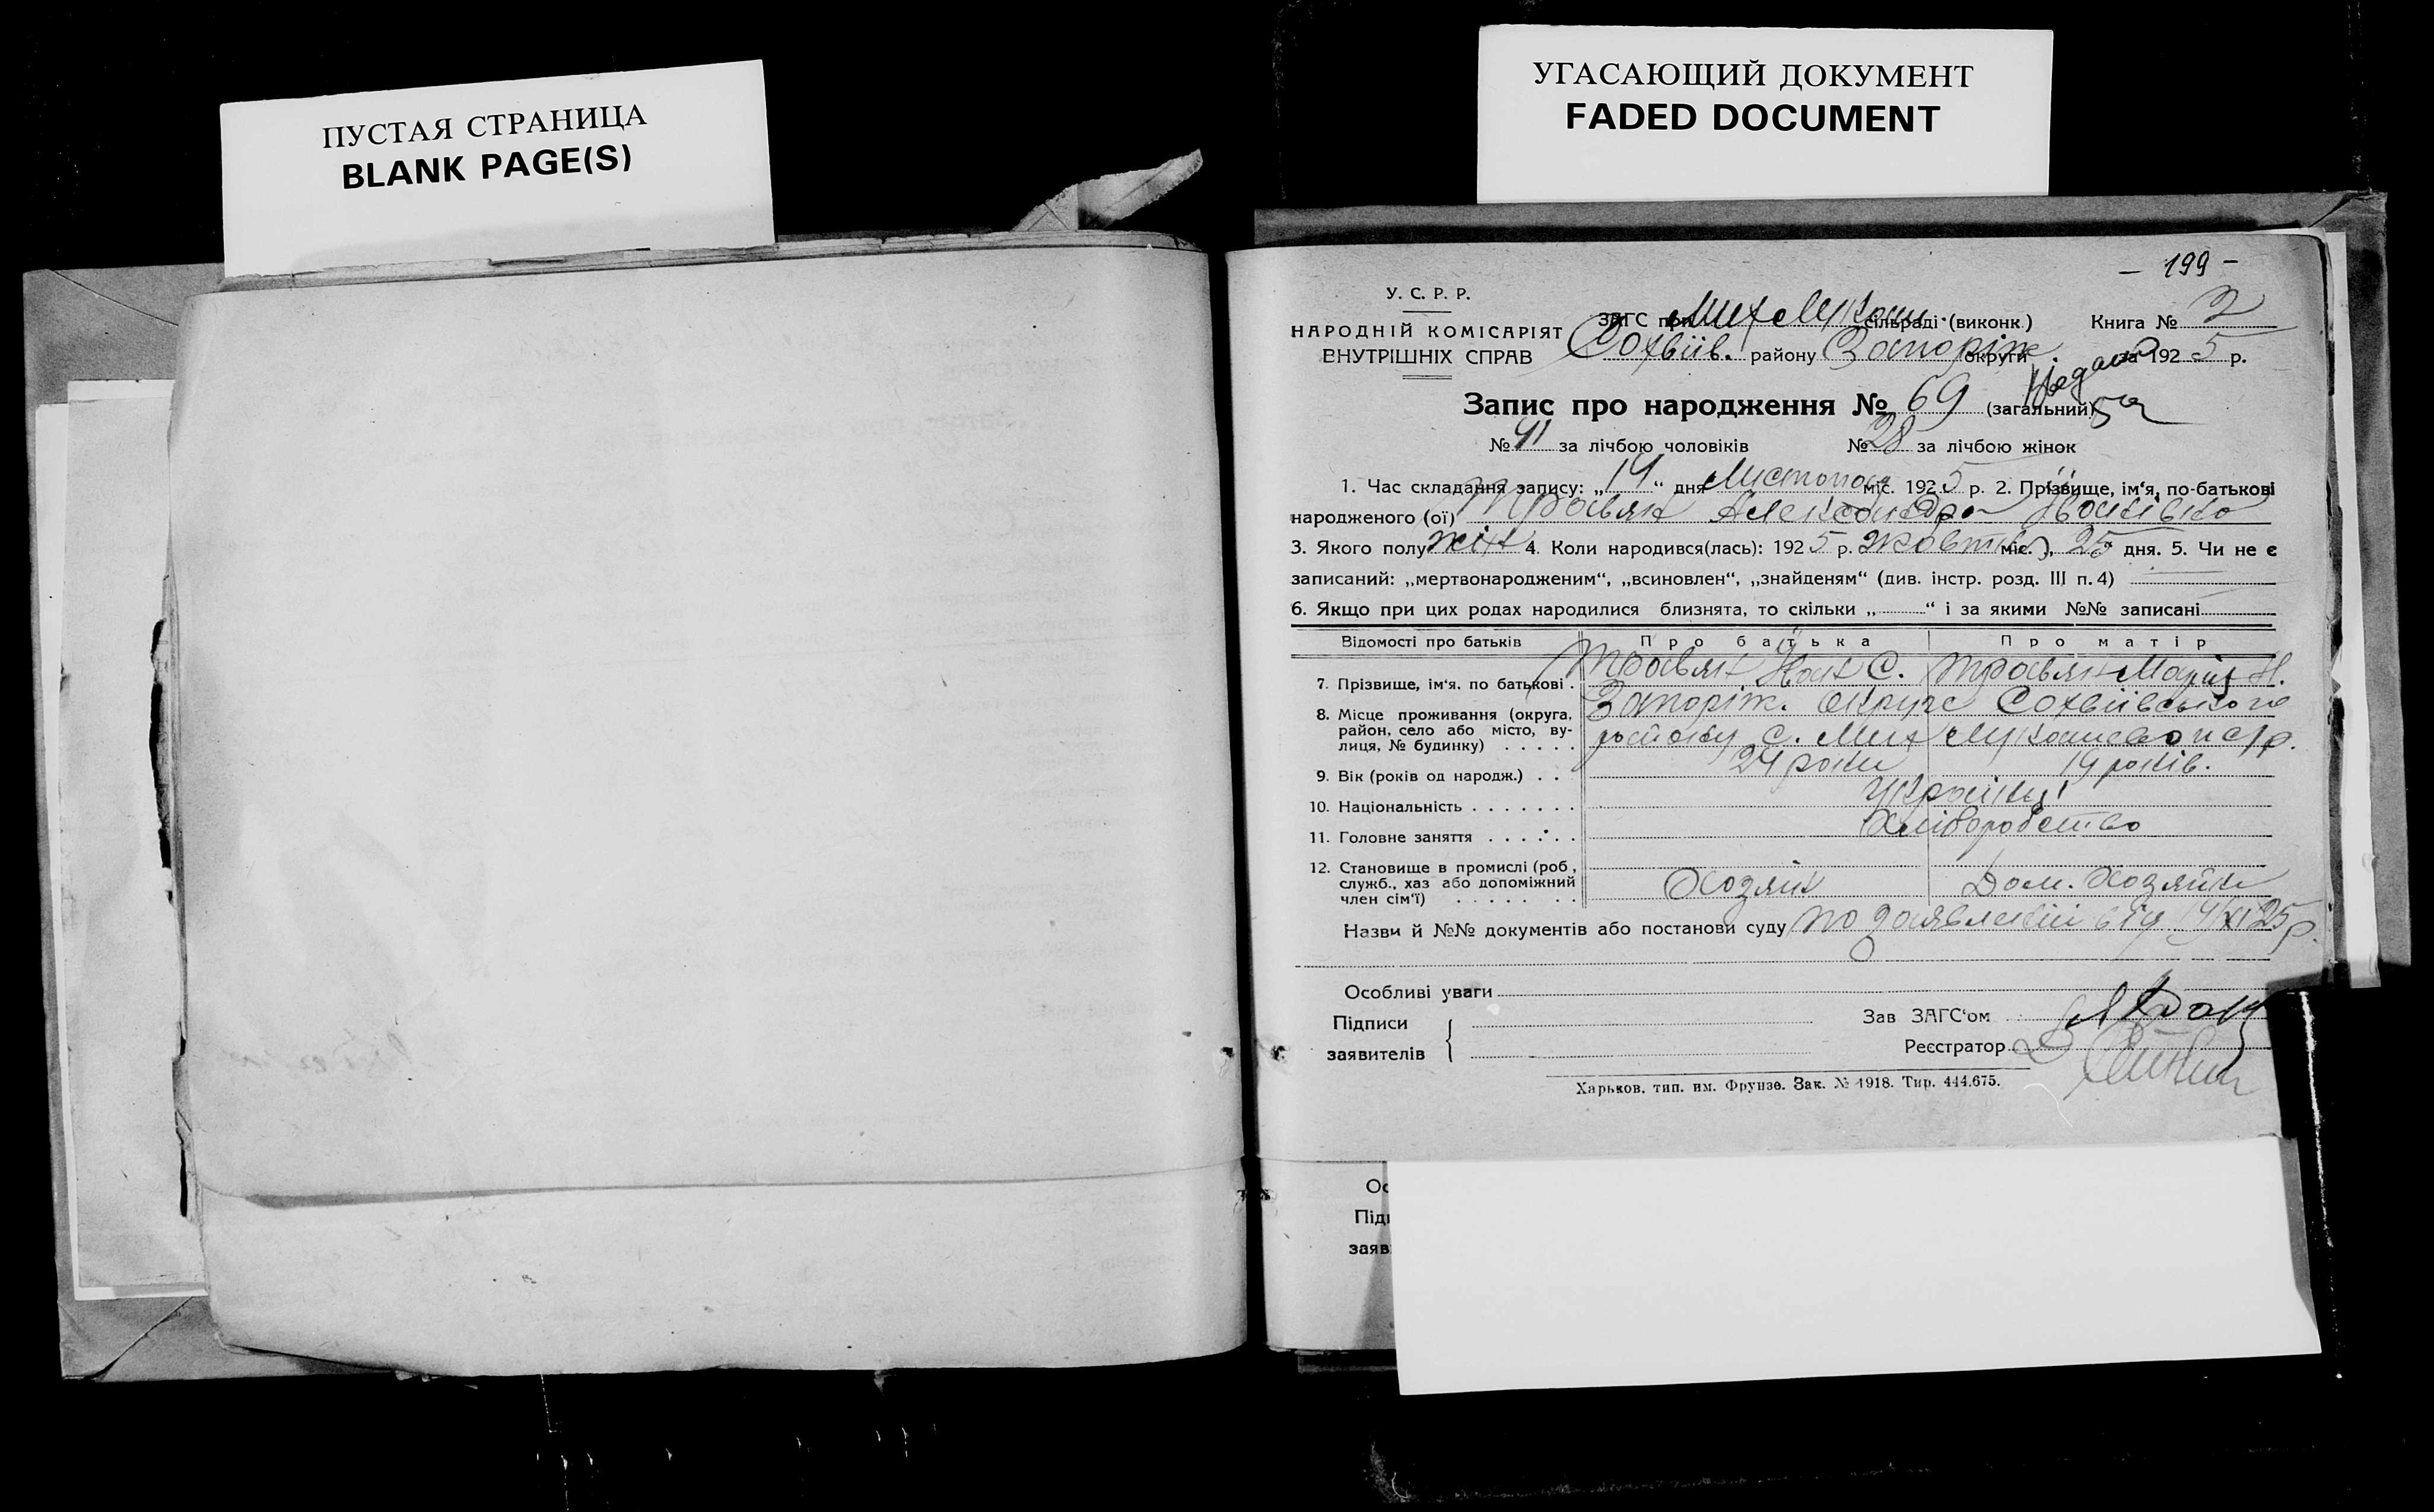 ПУСТАЯ СТРАНИЦА
BLANK PAGE(S)
УГАСАЮЩИЙ ДОКУМЕНТ
FADED DOCUMENT
— 199 —
У. С. Р. Р.
НАРОДНІЙ КОМІСАРІЯТ
ВНУТРІШНІХ СПРАВ
ЗАГС при Мих Лукаш. сільраді (виконк.) Книга № 2
Софіїв. району Запоріж округи за 1925 р.
Запис про народження № 69 (загальний)
№ 41 за лічбою чоловіків № 28 за лічбою жінок
1. Час складання запису: „14“ дня Листопад міс. 1925 р. 2. Прізвище, ім'я, по-батькові
народженого (ої) Травян Александра Іванівна
3. Якого полу жін 4. Коли народився(лась): 1925 р. жовтня міс. „25“ дня. 5. Чи не є
записаний: „мертвонародженим“, „всиновлен“, „знайденям“ (див. інстр. розд. III п. 4)
6. Якщо при цих родах народилися близнята, то скільки „ “ і за якими №№ записані
Відомості про батьків Про батька Про матір
7. Прізвище, ім'я, по батькові Травян Іван С. Травян Марія Н.
8. Місце проживання (округа, район, село або місто, вулиця, № будинку) Запоріж. округа Софіївського
району с. Мих Лукашево с/р.
9. Вік (років од народж.) 24 роки 19 років.
10. Національність Українці
11. Головне заняття Хліборобство
12. Становище в промислі (роб, служб., хаз або допоміжний член сім'ї) Хозяін Дом. Хозяйка
Назви й №№ документів або постанови суду по заявленій від 14/XI 25 р.
Особливі уваги
Підписи
заявителів
Зав ЗАГС'ом
Реєстратор
Харьков. тип. им. Фрунзе. Зак. № 1918. Тир. 444.675.
Ос
Підп
заяв